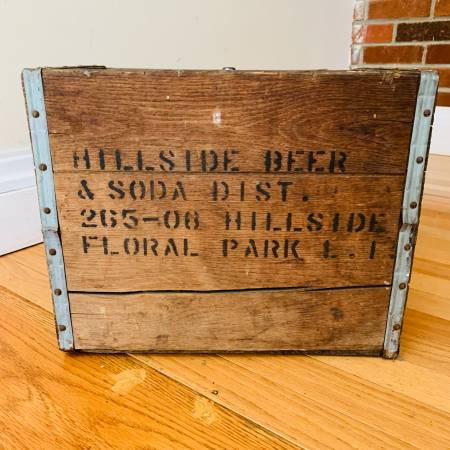 HILLSIDE BEER
& SODA DIST.
265-06 HILLSIDE
FLORAL PARK L.I.